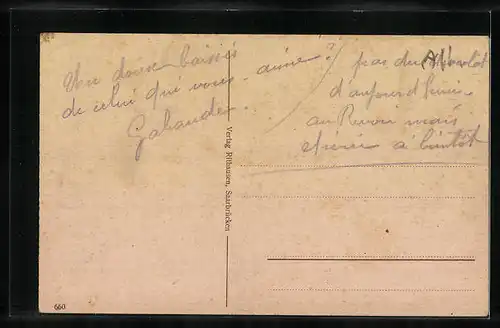 Un doux baisés
de celui qui vous aime?
Gabander.
pas du
d'aujourd'hui
au Revoir mais
à bientot
Verlag Rithausen, Saarbrücken
660